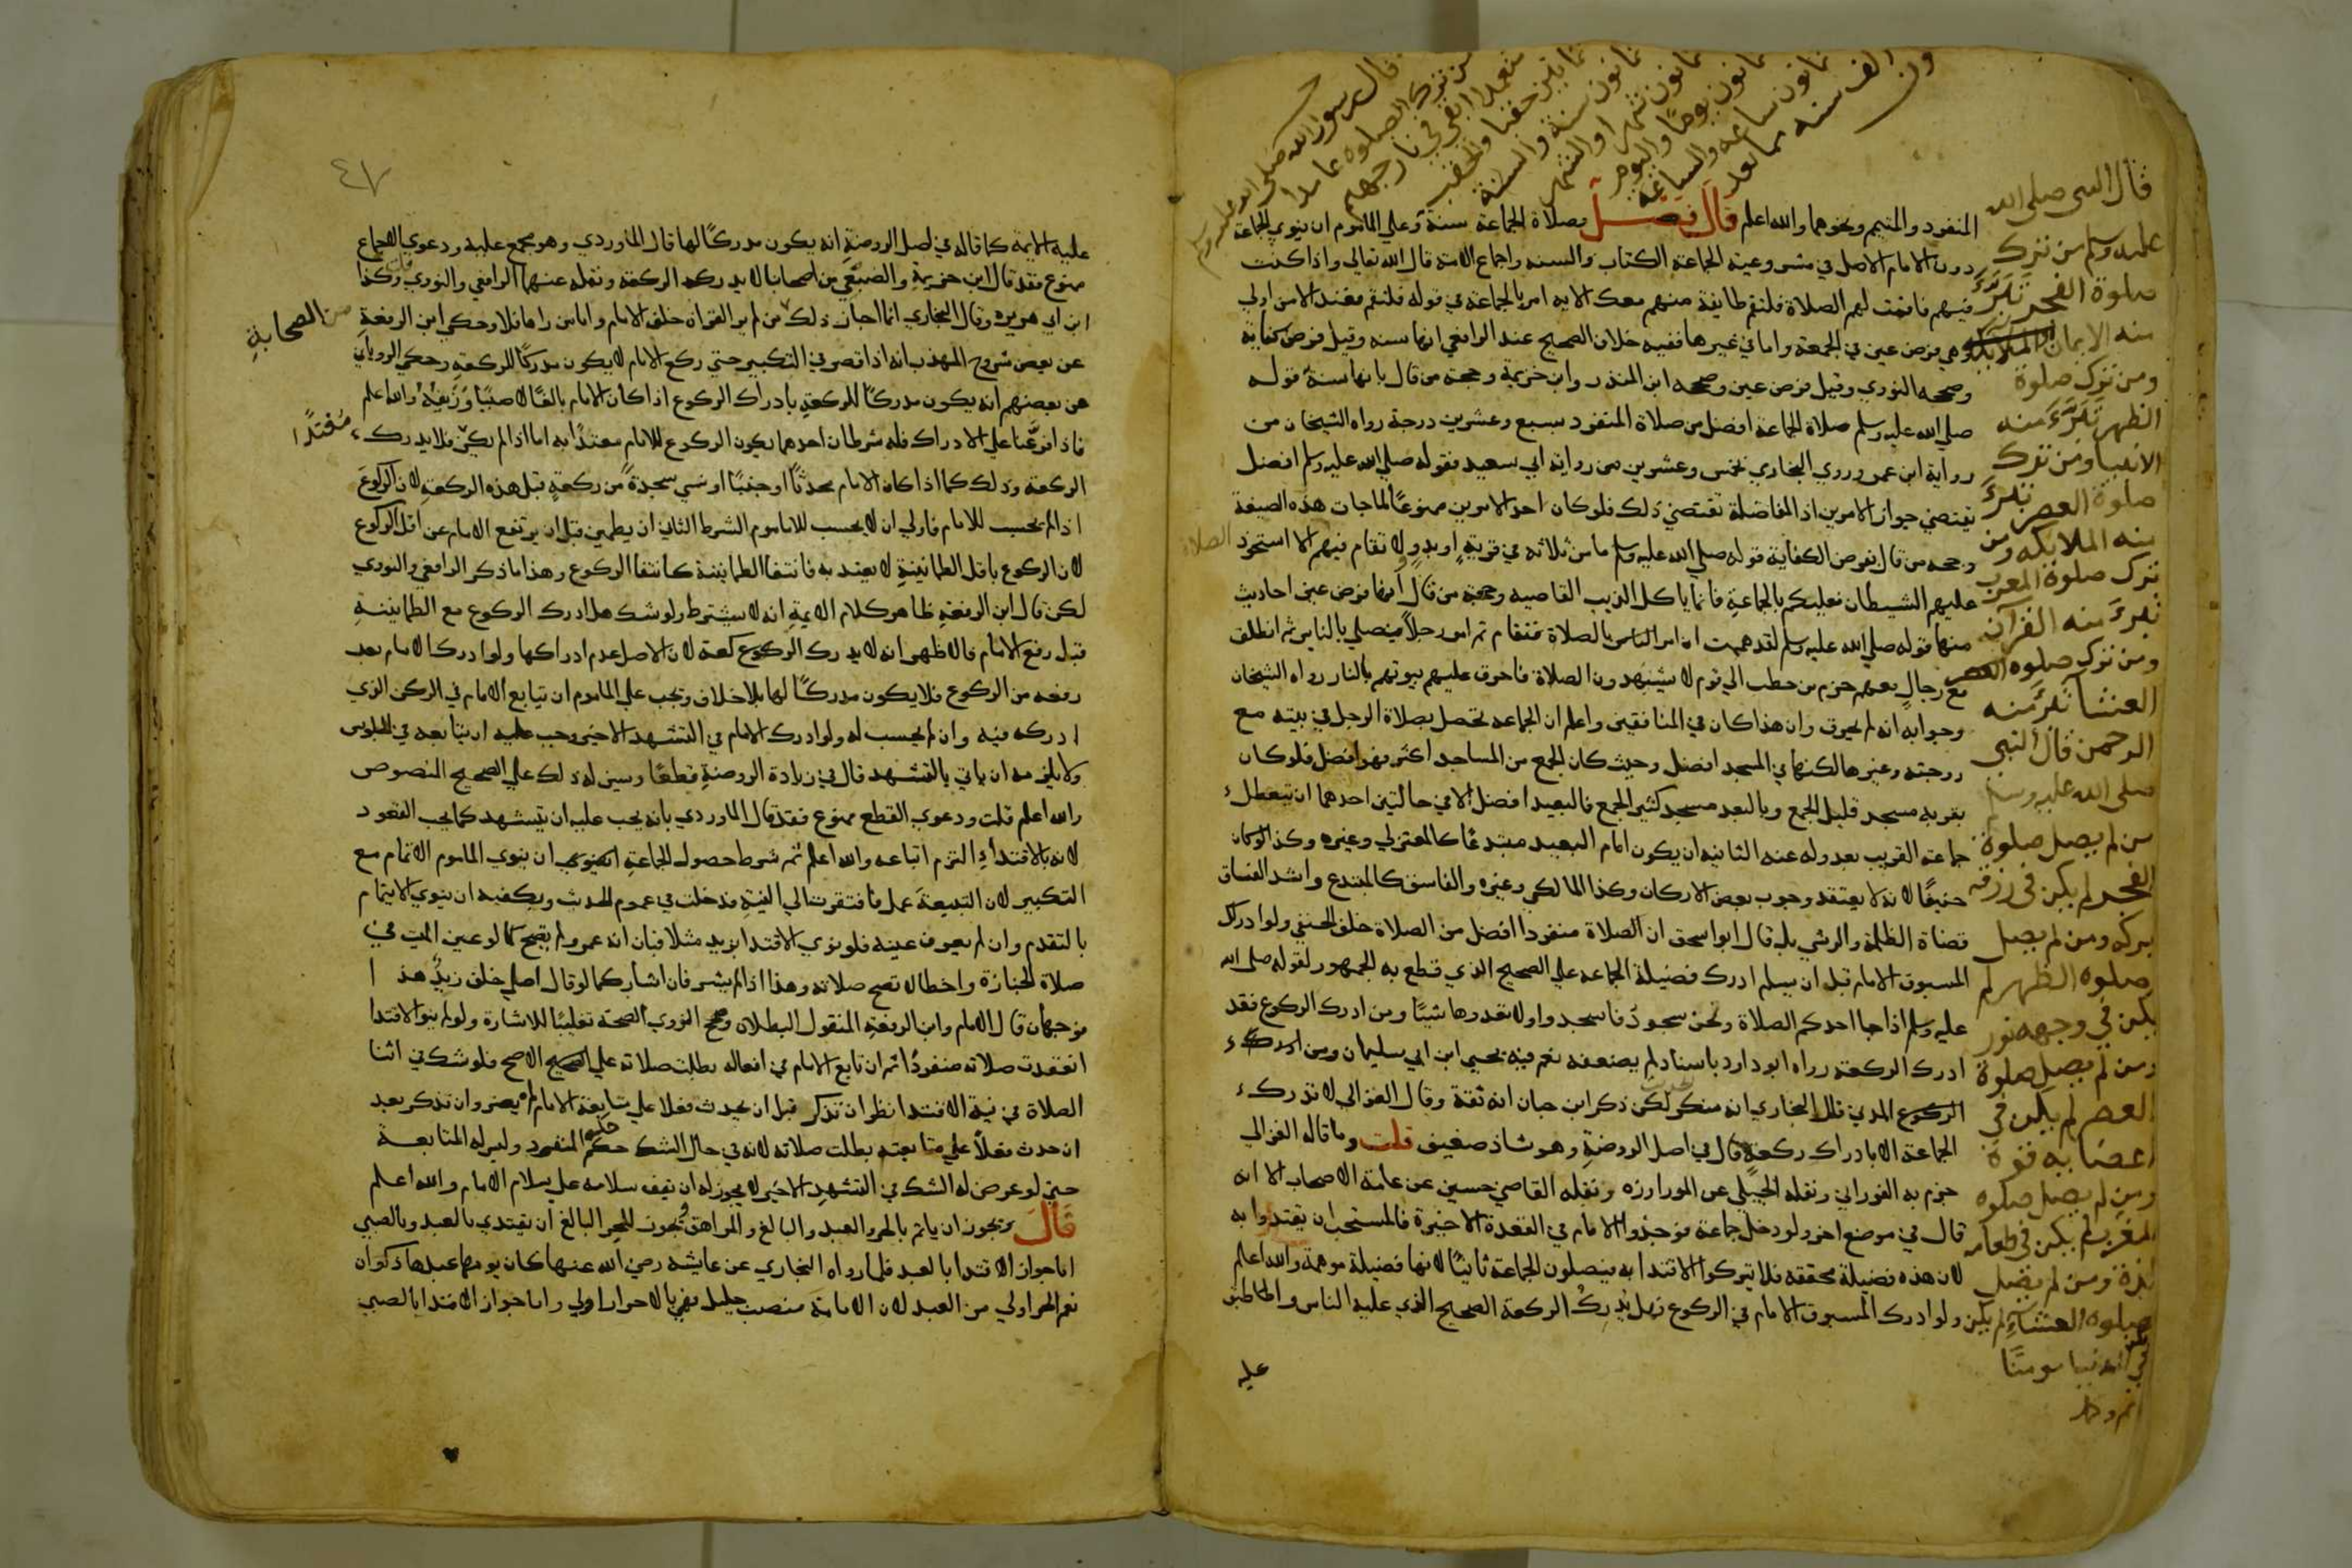 المنفرد والمتيم ونحوهما والله اعلم قال فصل وصلاة الجماعة سنة وعلى الماموم ان ينوي الجماعة
دون الامام الاصل في مشروعية الجماعة الكتاب والسنة واجماع الامة قال الله تعالى واذا كنت
فيهم فاقمت لهم الصلاة فلتقم طايفة منهم معك الاية امر بالجماعة في قوله فلتقم فعند الامن اولي
وهي فرض عين في الجمعة واما في غيرها ففيه خلاف الصحيح عند الرافعي انها سنه وقيل فرض كفاية
وصححه النووي وقيل فرض عين وصححه ابن المنذر وابن خزيمة وحجة من قال بانها سنة قوله
صلى الله عليه وسلم صلاة الجماعة افضل من صلاة المنفرد بسبع وعشرين درجة رواه الشيخان من
رواية ابن عمر وروي البخاري بخمس وعشرين من رواية ابي سعيد فقوله صلى الله عليه وسلم افضل
تقتضي جواز الامرين اذ المفاضلة تقتضي ذلك فلو كان احد الامرين ممنوعا لما جات هذه الصيغة
وحجة من قال بفرض الكفاية قوله صلى الله عليه وسلم ما من ثلاثة في قرية او بدو لا تقام فيهم الا استحوذ
الصلاة
عليهم الشيطان فعليكم بالجماعة فانما ياكل الذيب القاصية وحجة من قال انها فرض عين احاديث
منها قوله صلى الله عليه وسلم لقد هممت ان امر الناس بالصلاة فتقام ثم امر رجلا فيصلي بالناس ثم انطلق
مع رجال معهم حزم من حطب الي قوم لا يشهدون الصلاة فاحرق عليهم بيوتهم بالنار رواه الشيخان
وجوابه انه لم يحرق وان هذا كان في المنافقين واعلم ان الجماعة تحصل بصلاة الرجل في بيته مع
زوجته وغيرها لكنها في المسجد افضل وحيث كان الجمع من المساجد اكثر فهو افضل فلو كان
بقربه مسجد قليل الجمع وبالبعد مسجد كثير الجمع فالبعيد افضل الا في حالتين احدهما ان تتعطل
جماعة القريب بعدوله عنه الثانية ان يكون امام البعيد مبتدعا كالمعتزلي وغيره وكذا لو كان
حنيفا لانه لا يعتقد وجوب بعض الاركان وكذا المالكي وغيره والفاسق كالمبتدع واشد الفساق
قضاة الظلمة والرشي بل قال ابو اسحق ان الصلاة منفردا افضل من الصلاة خلف الحنفي ولو ادرك
المسبوق الامام قبل ان يسلم ادرك فضيلة الجماعة علي الصحيح الذي قطع به الجمهور لقوله صلى الله
عليه وسلم اذا جا احدكم الصلاة ونحن سجود فاسجدوا ولا تعدوها شيئا ومن ادرك الركوع فقد
ادرك الركعة رواه ابو داود باسناد لم يضعفه نعم فيه يحيي ابن ابي سليمان ومن ادرك
الركوع المدني قال البخاري انه منكر لكن ذكر ابن حبان انه ثقة وقال الغزالي لا تدرك
الجماعة الا بادراك ركعة قال في اصل الروضة وهو شاذ ضعيف قلت وما قاله الغزالي
جزم به الفوراني ونقله الجيلي عن المراوزه ونقله القاضي حسين عن عامة الاصحاب الا انه
قال في موضع اخر ولو دخل جماعة فوجدوا الامام في القعدة الاخيرة فالمستحب ان يقتدوا به
لان هذه فضيلة محققه فلا تتركوا الاقتدا به فيصلون الجماعة ثانيا لانها فضيلة موهمة والله اعلم
ولو ادرك المسبوق الامام في الركوع فهل يدرك الركعة الصحيح الذي عليه الناس واطبق
عليه
قال النبي صلى الله
عليه وسلم من ترك
صلوة الفجر تبرء
منه الايمان
ومن ترك صلوة
الظهر تبرء منه
الانبيا ومن ترك
صلوة العصر تبرء
منه الملايكه ومن
ترك صلوة المغرب
تبرء منه القرآن
ومن ترك صلوه
العشا تبرء منه
الرحمن قال النبي
صلى الله عليه وسلم
من لم يصل صلوة
الفجر لم يكن في رزقه
بركه ومن لم يصل
صلوه الظهر لم
يكن في وجهه نور
ومن لم يصل صلوة
العصر لم يكن في
اعضابه قوة
ومن لم يصل صلوه
المغرب لم يكن في طعامه
لذة ومن لم يصل
صلوه العشاء لم يكن
مومنا
قال رسول الله صلى الله عليه وسلم
من ترك الصلوة عامدا
متعمدا ابقي في نار جهنم
ثمانين حقبا والحقب
ثمانون سنة والسنة
ثمانون شهرا والشهر
ثمانون يوما واليوم
ثمانون ساعة والساعة
الف سنه مما تعدون
٤٧
عليه الايمة كما قاله في اصل الروضة انه يكون مدركا لها قال الماوردي وهو مجمع عليه ودعوي الاجماع
ممنوع فقد قال ابن خزيمة والضبعي من اصحابنا لا يدرك الركعة ونقله عنهما الرافعي والنووي وكذا
ابن ابي هريره وقال البخاري انما اجاز ذلك من لم ير القراة خلف الامام واما من راها فلا وحكي ابن الرفعة
من الصحابة
عن بعض شروح المهذب انه اذا قصر في التكبير حتي ركع الامام لا يكون مدركا للركعة وحكي الروياني
عن بعضهم انه يكون مدركا للركعة بادراك الركوع اذا كان الامام بالغا لا صبيا وزيفه والله اعلم
فاذا فرعنا علي الادراك فله شرطان احدهما يكون الركوع للامام معتدا به اما اذا لم يكن فلا يدرك
مُعْتَدًا
الركعة وذلك كما اذا كان الامام محدثا او جنبا او نسي سجدة من ركعة قبل هذه الركعة لان الركوع
اذا لم يحسب للامام فاولي ان لا يحسب للماموم الشرط الثاني ان يطمين قبل ان يرتفع الامام عن اقل الركوع
لان الركوع باقل الطمانينة لا يعتد به فانتفا الطمانينة كانتفا الركوع وهذا ما ذكر الرافعي والنووي
لكن قال ابن الرفعة ظاهر كلام الايمة انه لا يشترط ولو شك هل ادرك الركوع مع الطمانينة
قبل رفع الامام فالاظهر انه لا يدرك الركعة لان الاصل عدم ادراكها ولو ادرك الامام بعد
رفعه من الركوع فلا يكون مدركا لها بلا خلاف وتجب علي الماموم ان يتابع الامام في الركن الذي
ادركه فيه وان لم يحسب له ولو ادرك الامام في التشهد الاخير وجب عليه ان يتابعه في الجلوس
ولا يلزمه ان ياتي بالتشهد قال في زيادة الروضة قطعا وسن له ذلك علي الصحيح المنصوص
والله اعلم قلت ودعوي القطع ممنوع فقد قال الماوردي بانه يجب عليه ان يتشهد كما يجب القعود
لانه بالاقتداء التزم اتباعه والله اعلم ثم شرط حصول الجماعة ان ينوي الماموم الائتمام مع
التكبير لان التبعية عمل فافتقرت الي النية فدخلت في عموم الحديث ويكفيه ان ينوي الايتمام
بالتقدم وان لم يعرف عينه فلو نوي الاقتدا بزيد مثلا فبان انه عمرو لم يصح كما لو عين الميت في
صلاة الجنازة واخطا لا تصح صلاته وهذا اذا لم يشر فان اشار كما لو قال اصلي خلف زيد هذا
فوجهان قال الامام وابن الرفعة المنقول البطلان وصحح النووي الصحة تغليبا للاشارة ولو لم ينو الاقتدا
انعقدت صلاته منفردا ثم ان تابع الامام في افعاله بطلت صلاته علي الصحيح الاصح فلو شك في اثنا
الصلاة في نية الاقتدا نظر ان تذكر قبل ان يحدث فعلا علي متابعة الامام لم يضر وان تذكر بعد
ان حدث فعلا علي متابعته بطلت صلاته لانه في حال الشك حكمه حكم المنفرد وليس له المتابعة
حتي لو عرض له الشك في التشهد الاخير لا يجوز له ان يقف سلامه علي سلام الامام والله اعلم
قال ويجوز ان ياتم بالحر والعبد والبالغ والمراهق ويجوز للحر البالغ ان يقتدي بالعبد وبالصبي
اما جواز الاقتدا بالعبد فلما رواه البخاري عن عايشه رضي الله عنها كان يومها عبدها ذكوان
نعم الحر اولي من العبد لان الامامة منصب جليل فهي بالاحرار اولي واما جواز الاقتدا بالصبي